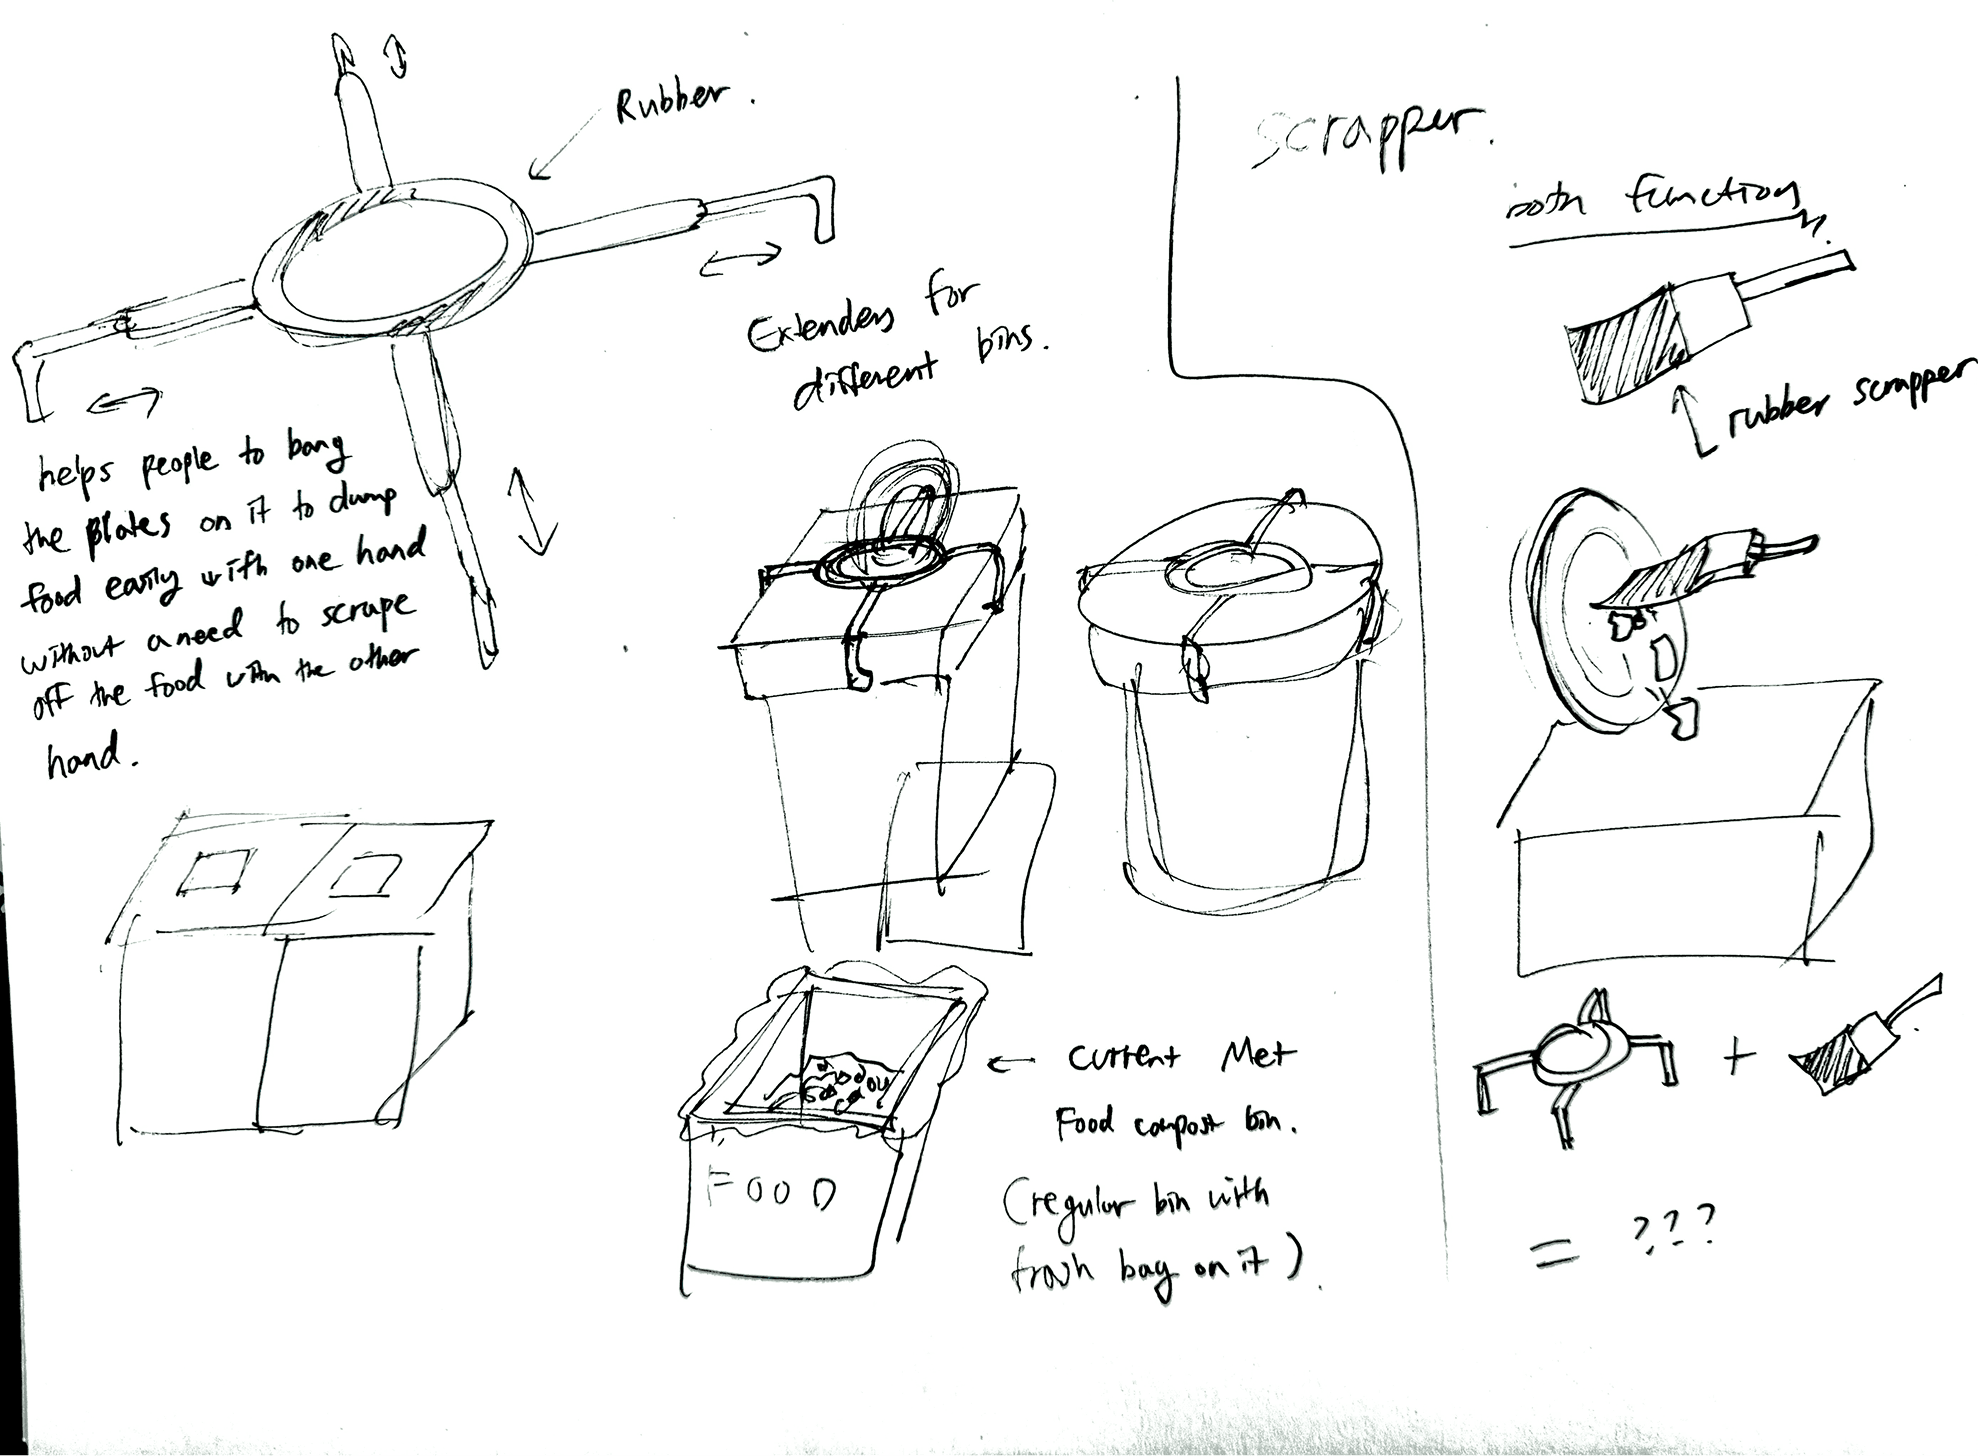 Rubber.
Extenders for
different bins.
helps people to bang
the plates on it to dump
food easily with one hand
without a need to scrape
off the food with the other
hand.
FOOD
← current Met
Food compost bin.
(regular bin with
trash bag on it).
scrapper.
both function
rubber scrapper
+
= ???